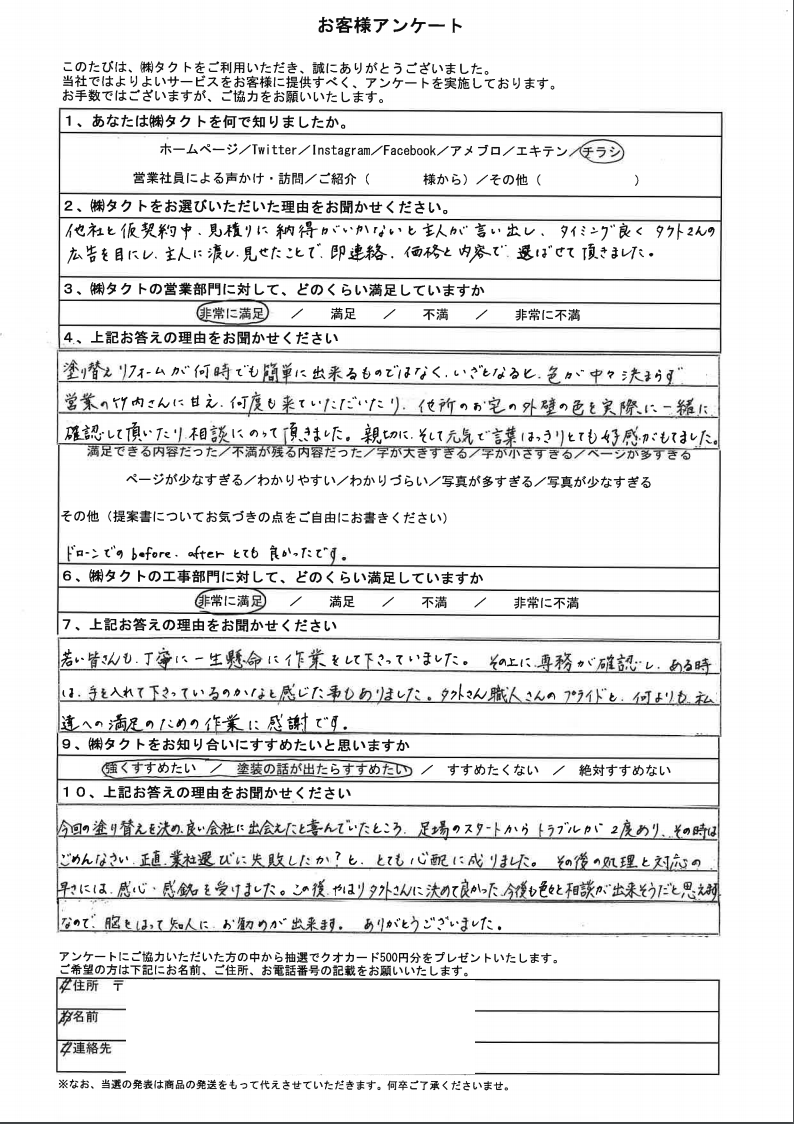 お客様アンケート
このたびは、㈱タクトをご利用いただき、誠にありがとうございました。
当社ではよりよいサービスをお客様に提供すべく、アンケートを実施しております。
お手数ではございますが、ご協力をお願いいたします。
1、あなたは㈱タクトを何で知りましたか。
ホームページ／Twitter／Instagram／Facebook／アメブロ／エキテン／チラシ
営業社員による声かけ・訪問／ご紹介（　　　様から）／その他（　　　　　　）
2、㈱タクトをお選びいただいた理由をお聞かせください。
他社と仮契約中、見積りに納得がいかないと主人が言い出し、タイミング良くタクトさんの
広告を目にし、主人に渡し、見せたことで、即連絡、価格と内容で、選ばせて頂きました。
3、㈱タクトの営業部門に対して、どのくらい満足していますか
非常に満足　／　満足　／　不満　／　非常に不満
4、上記お答えの理由をお聞かせください
塗り替えリフォームが何時でも簡単に出来るものではなく、いざとなると、色が中々決まらず
営業の竹内さんに甘え、何度も来ていただいたり、他所のお宅の外壁の色を実際に一緒に
確認して頂いたり、相談にのって頂きました。親切に、そして元気で言葉はっきりとても好感がもてました。
満足できる内容だった／不満が残る内容だった／字が大きすぎる／字が小さすぎる／ページが多すぎる
ページが少なすぎる／わかりやすい／わかりづらい／写真が多すぎる／写真が少なすぎる
その他（提案書についてお気づきの点をご自由にお書きください）
ドローンでのbefore．afterとても良かったです。
6、㈱タクトの工事部門に対して、どのくらい満足していますか
非常に満足　／　満足　／　不満　／　非常に不満
7、上記お答えの理由をお聞かせください
若い皆さんも、丁寧に一生懸命に作業をして下さっていました。その上に、専務が確認し、ある時
は、手を入れて下さっているのかなと感じた事もありました。タクトさん職人さんのプライドと、何よりも、私
達への満足のための作業に感謝です。
9、㈱タクトをお知り合いにすすめたいと思いますか
強くすすめたい　／　塗装の話が出たらすすめたい　／　すすめたくない　／　絶対すすめない
10、上記お答えの理由をお聞かせください
今回の塗り替えを決め、良い会社に出会えたと喜んでいたところ、足場のスタートからトラブルが2度あり、その時は
ごめんなさい、正直、業社選びに失敗したか？と、とても心配に成りました。その後の処理と対応の
早さには、感心・感銘を受けました。この後、やはりタクトさんに決めて良かった、今後も色々と相談が出来そうだと思えます
なので、胸をはって知人に、お勧めが出来ます。ありがとうございました。
アンケートにご協力いただいた方の中から抽選でクオカード500円分をプレゼントいたします。
ご希望の方は下記にお名前、ご住所、お電話番号の記載をお願いいたします。
ご住所　〒
お名前
ご連絡先
※なお、当選の発表は商品の発送をもって代えさせていただきます。何卒ご了承くださいませ。